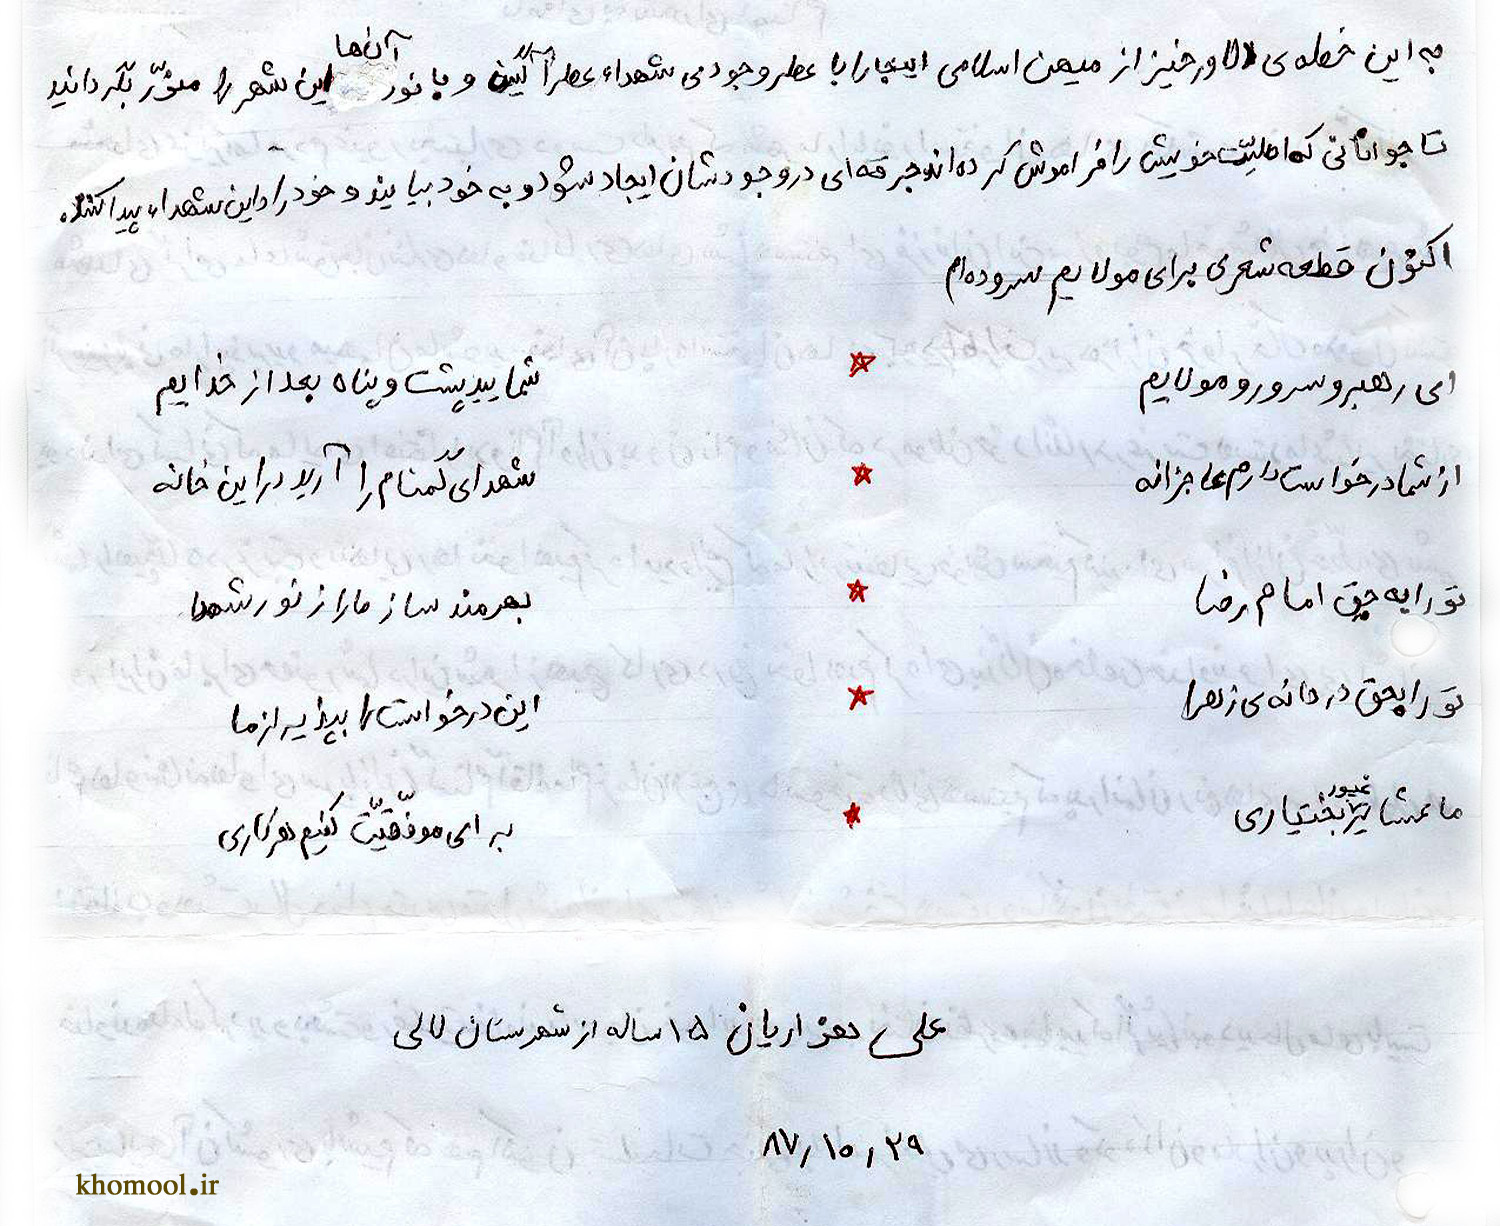 به این خطه‌ی دلاورخیز از میهن اسلامی اینجا را با عطر وجودی شهداء عطرآگین و با نور آن‌ها این شهر را منوّر بگردانید
تا جوانانی که اصلیّت خویش را فراموش کرده‌اند جرقه‌ای در وجودشان ایجاد شود و به خود بیایند و خود را در این شهداء پیدا کنند.
اکنون قطعه شعری برای مولایم سروده‌ام
ای رهبر و سرور و مولایم ☆ شمایید پشت و پناه بعد از خدایم
از شما درخواست دارم عاجزانه ☆ شهدای گُمنام را آرید در این خانه
تو را به حق امام رضا ☆ بهرمند ساز ما را از نور شهدا
تو را بحق دردانه‌ی زهرا ☆ این درخواست را بپذیر از ما
ما عشایر غیور بختیاری ☆ بر امی موفّقیّت کنیم هر کاری
علی هزاریان ۱۵ ساله از شهرستان لالی
۸۷٫۱۰٫۲۹
khomool.ir